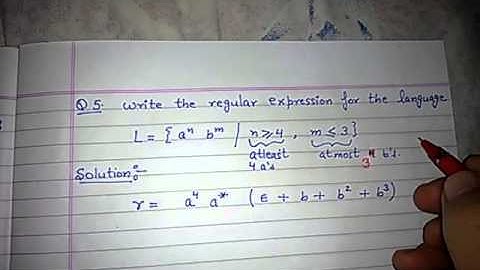 Q5. Write the regular expression for the language
L = { aⁿ bᵐ | n ≥ 4, m ≤ 3 }
atleast 4 a's atmost 3 b's.
Solution:-
r = a⁴ a* (ε + b + b² + b³)